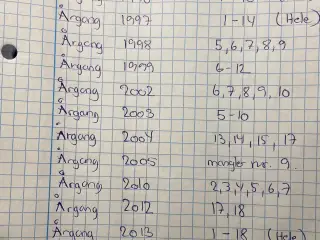 Årgang 1997 1-14 (Hele)
Årgang 1998 5,6,7,8,9
Årgang 1999 6-12
Årgang 2002 6,7,8,9,10
Årgang 2003 5-10
Årgang 2004 13,14,15,17
Årgang 2005 mangler nr. 9.
Årgang 2010 2,3,4,5,6,7
Årgang 2012 17,18
Årgang 2013 1-18 (Hele)